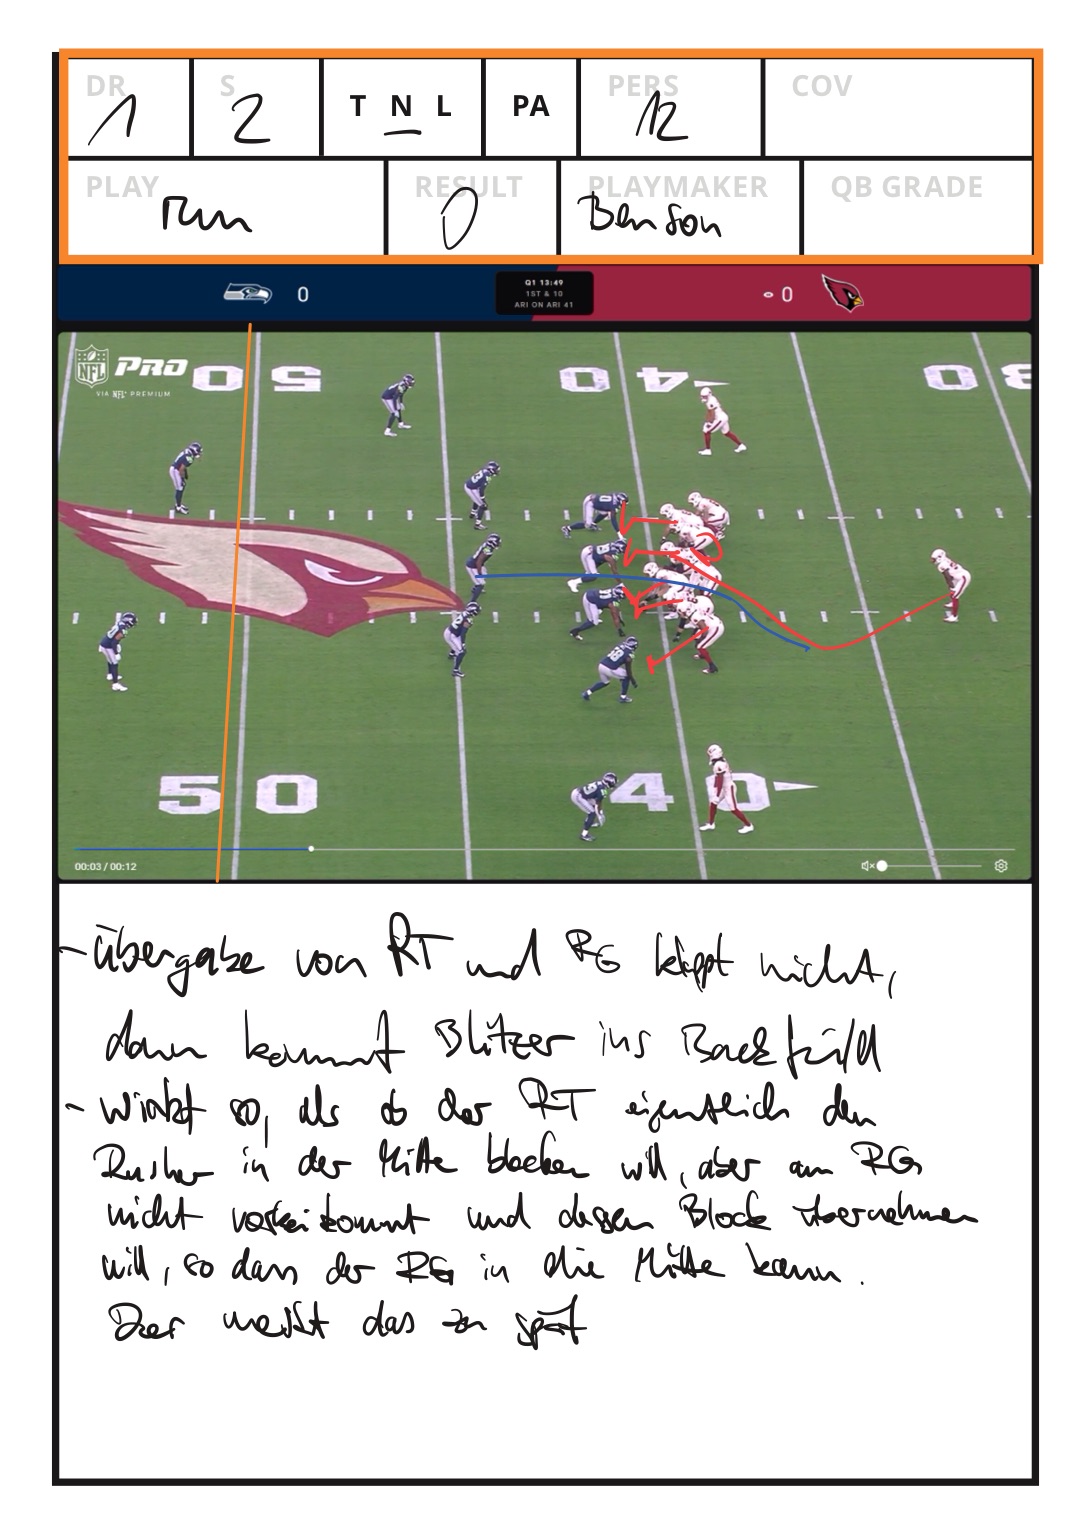 DR S T N L PA PERS COV
1 2 12
PLAY RESULT PLAYMAKER QB GRADE
run 0 Benson
0 Q1 13:49 0
1ST & 10
ARI ON ARI 41
NFL PRO
VIA NFL+ PREMIUM
0 5 0 4 0 3
5 0 4 0
00:03 / 00:12
- Übergabe von RT und RG klappt nicht,
dann kommt Blitzer ins Backfield
- Wirkt so, als ob der RT eigentlich den
Rusher in der Mitte blocken will, aber am RG
nicht vorbeikommt und dessen Block übernehmen
will, so dass der RG in die Mitte kann.
Der merkt das zu spät